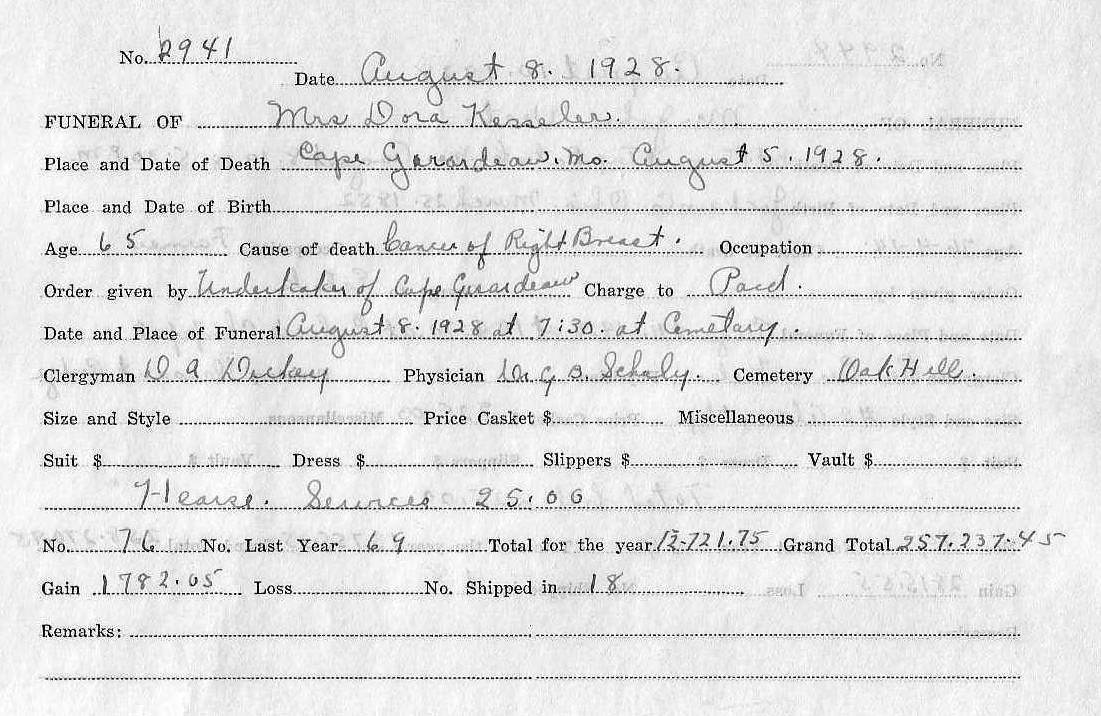 No. 2941
Date August 8. 1928.
FUNERAL OF Mrs Dora Kesseler.
Place and Date of Death Cape Gerardeau. Mo. August 5. 1928.
Place and Date of Birth
Age 65 Cause of death Cancer of Right Breast. Occupation
Order given by Undertaker of Cape Girardeau Charge to Paid.
Date and Place of Funeral August 8. 1928 at 7:30. at Cemetary.
Clergyman D A Dickey Physician Dr. G B. Schaly. Cemetery Oak Hill.
Size and Style Price Casket $ Miscellaneous
Suit $ Dress $ Slippers $ Vault $
Hearse. Services 25.00
No. 76 No. Last Year 69 Total for the year 12-721.75 Grand Total 257.237.45
Gain 1782.05 Loss No. Shipped in 18
Remarks: